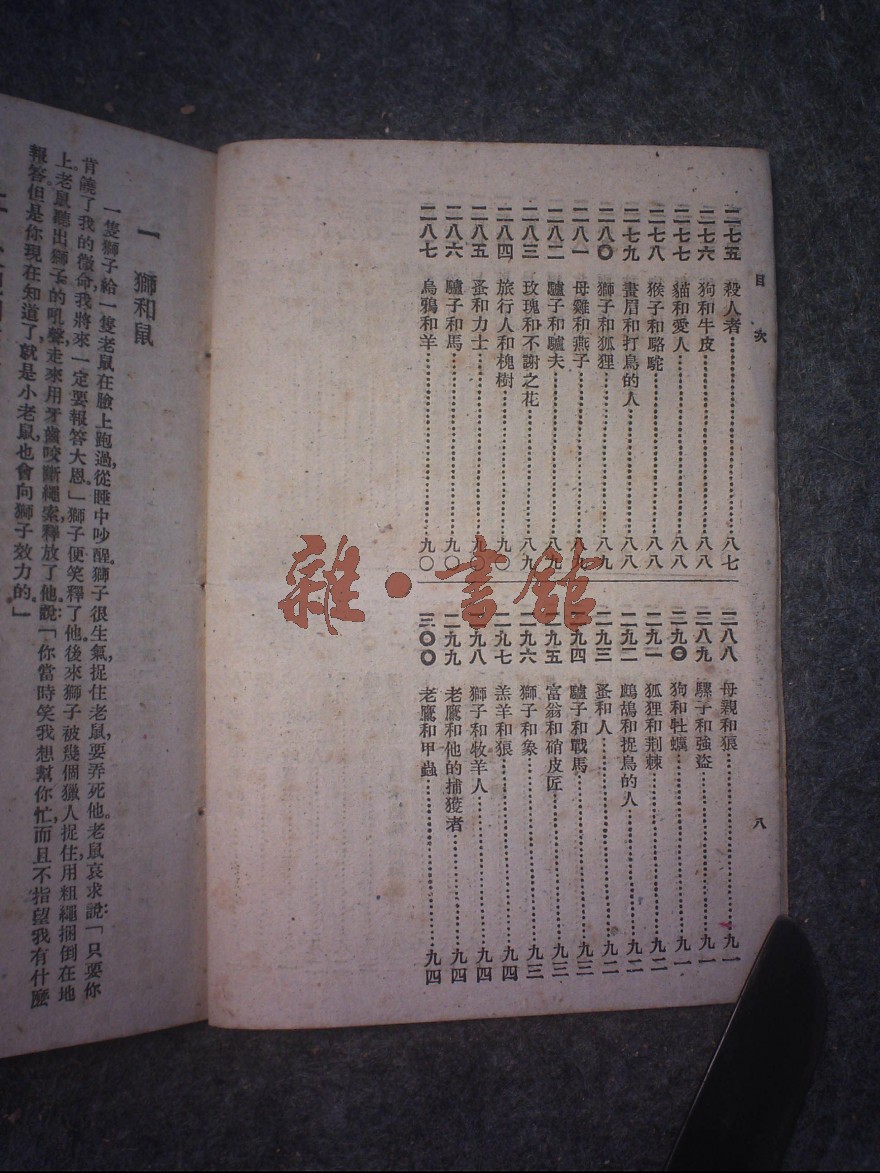 目次
八
二七五 殺人者……八七
二七六 狗和牛皮……八八
二七七 貓和愛人……八八
二七八 猴子和駱駝……八八
二七九 畫眉和打鳥的人……八八
二八〇 獅子和狐狸……八九
二八一 母雞和燕子……八九
二八二 驢子和驢夫……八九
二八三 玫瑰和不謝之花……八九
二八四 旅行人和槐樹……九〇
二八五 蚤和力士……九〇
二八六 驢子和馬……九〇
二八七 烏鴉和羊……九〇
二八八 母親和狼……九一
二八九 騾子和強盜……九一
二九〇 狗和牡蠣……九一
二九一 狐狸和荆棘……九二
二九二 鷓鴣和捉鳥的人……九二
二九三 蚤和人……九二
二九四 驢子和戰馬……九三
二九五 富翁和硝皮匠……九三
二九六 獅子和象……九三
二九七 羔羊和狼……九四
二九八 獅子和牧羊人……九四
二九九 老鷹和他的捕獲者……九四
三〇〇 老鷹和甲蟲……九四
一 獅和鼠
一隻獅子給一隻老鼠在臉上跑過,從睡中吵醒。獅子很生氣,捉住老鼠,要弄死他。老鼠哀求說:「只要你
肯饒了我的微命,我將來一定要報答大恩。」獅子便笑釋了他。後來獅子被幾個獵人捉住,用粗繩捆倒在地
上。老鼠聽出獅子的吼聲,走來用牙齒咬斷繩索,釋放了他,說:「你當時笑我想幫你忙,而且不指望我有什麼
報答。但是你現在知道了,就是小老鼠,也會向獅子效力的。」
雜·書館